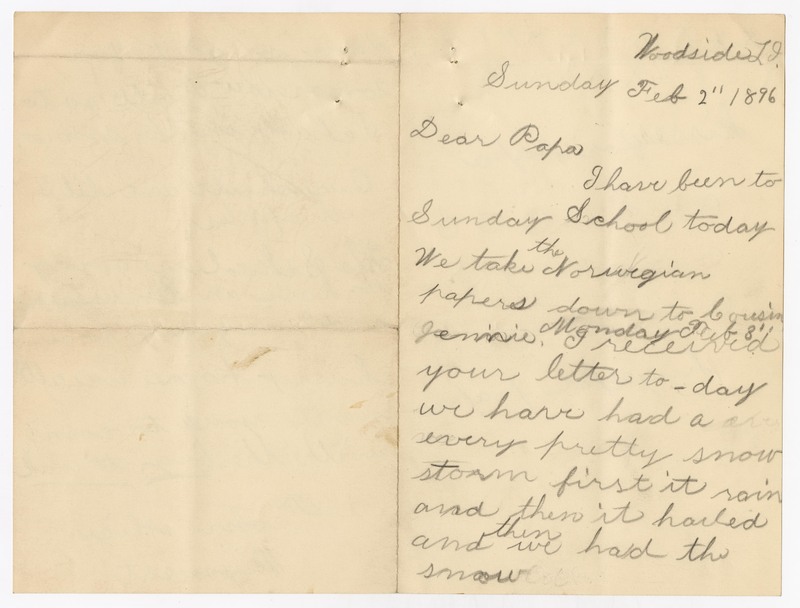 Woodside L.I.
Sunday Feb 2" 1896
Dear Papa
I have been to
Sunday School today
We take the Norwegian
papers down to Cousin
Jennie. Monday Feb 3"
I received
your letter to-day
we have had a
every pretty snow
storm first it rain
and then it hailed
and then we had the
snow